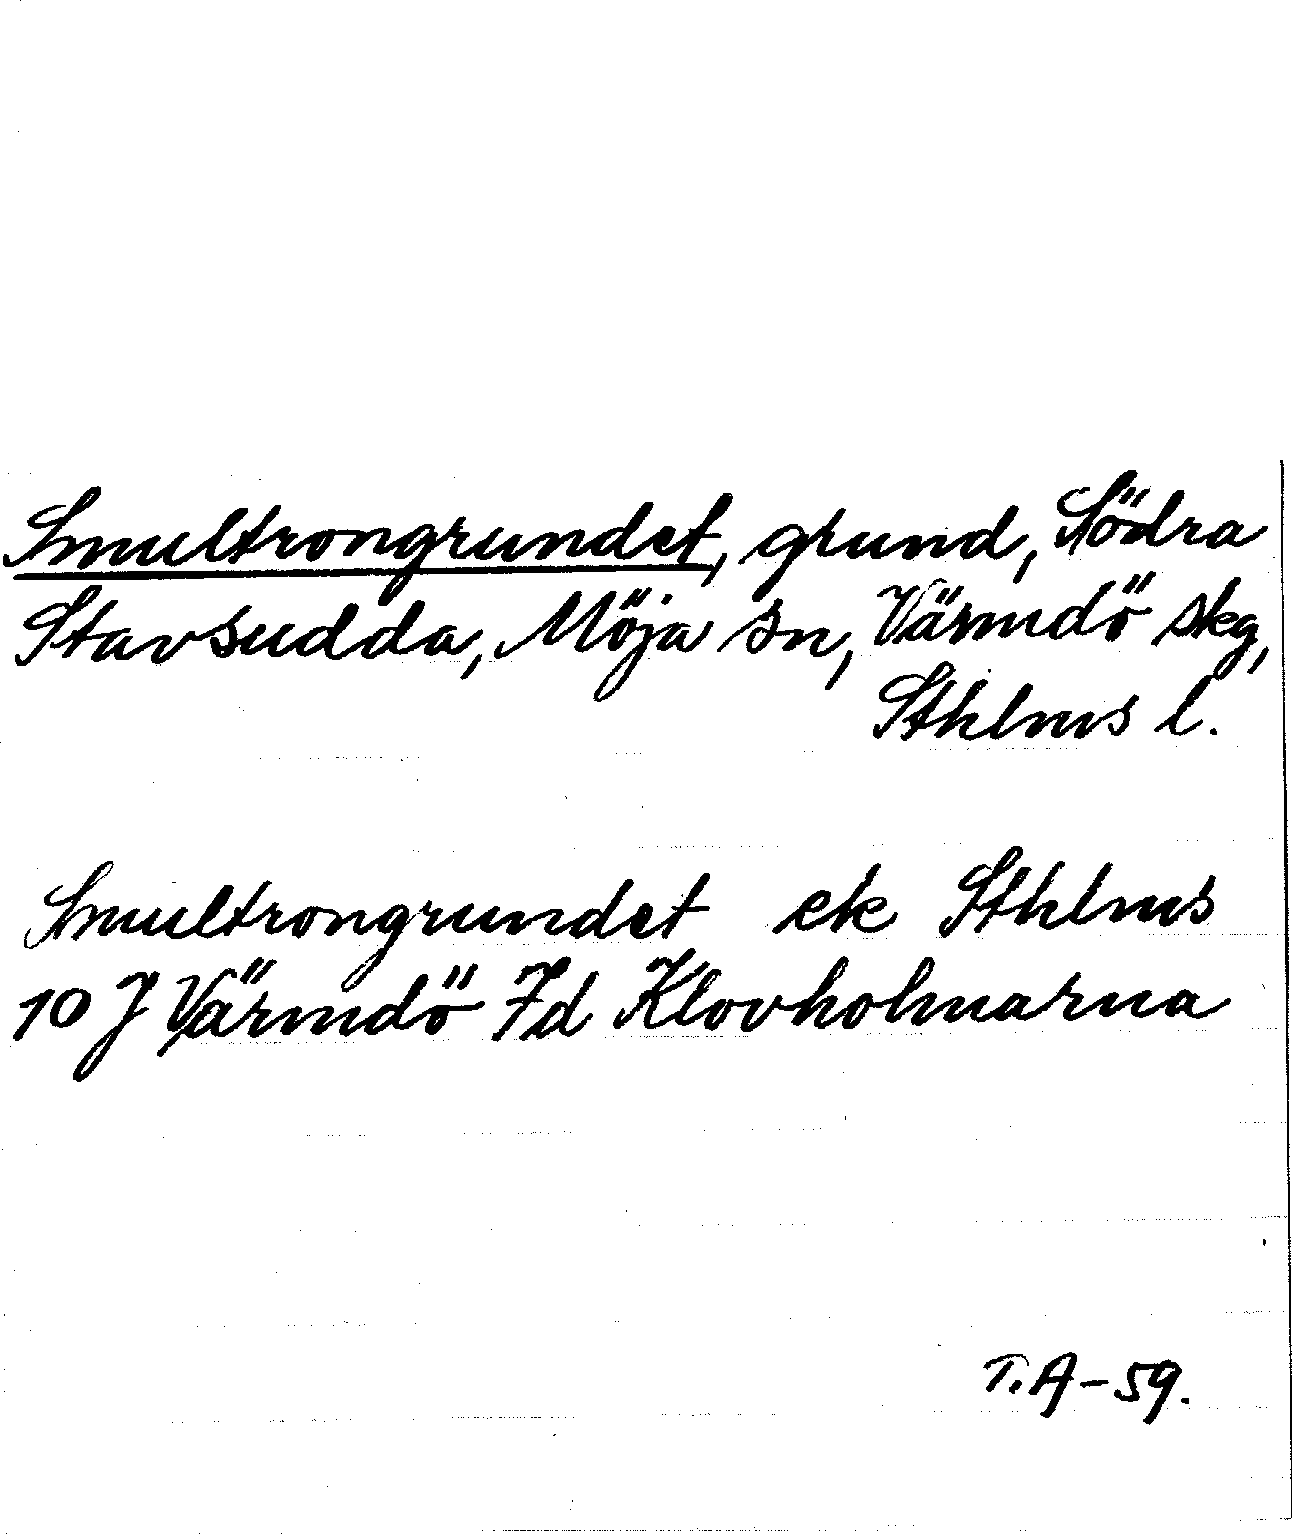 Smultrongrundet, grund, Södra
Stavsudda, Möja sn, Värmdö skg,
Sthlms l.
Smultrongrundet ek Sthlms
10 J Värmdö Fd Klovholmarna
T.A-59.